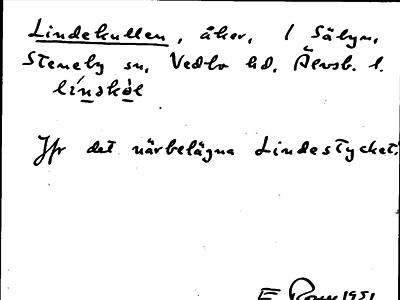 Lindekullen, åker, i Sälyn,
Steneby sn, Vedbo hd, Älvsb. l.
línskòl
Jfr det närbelägna Lindestycket.
E 1951